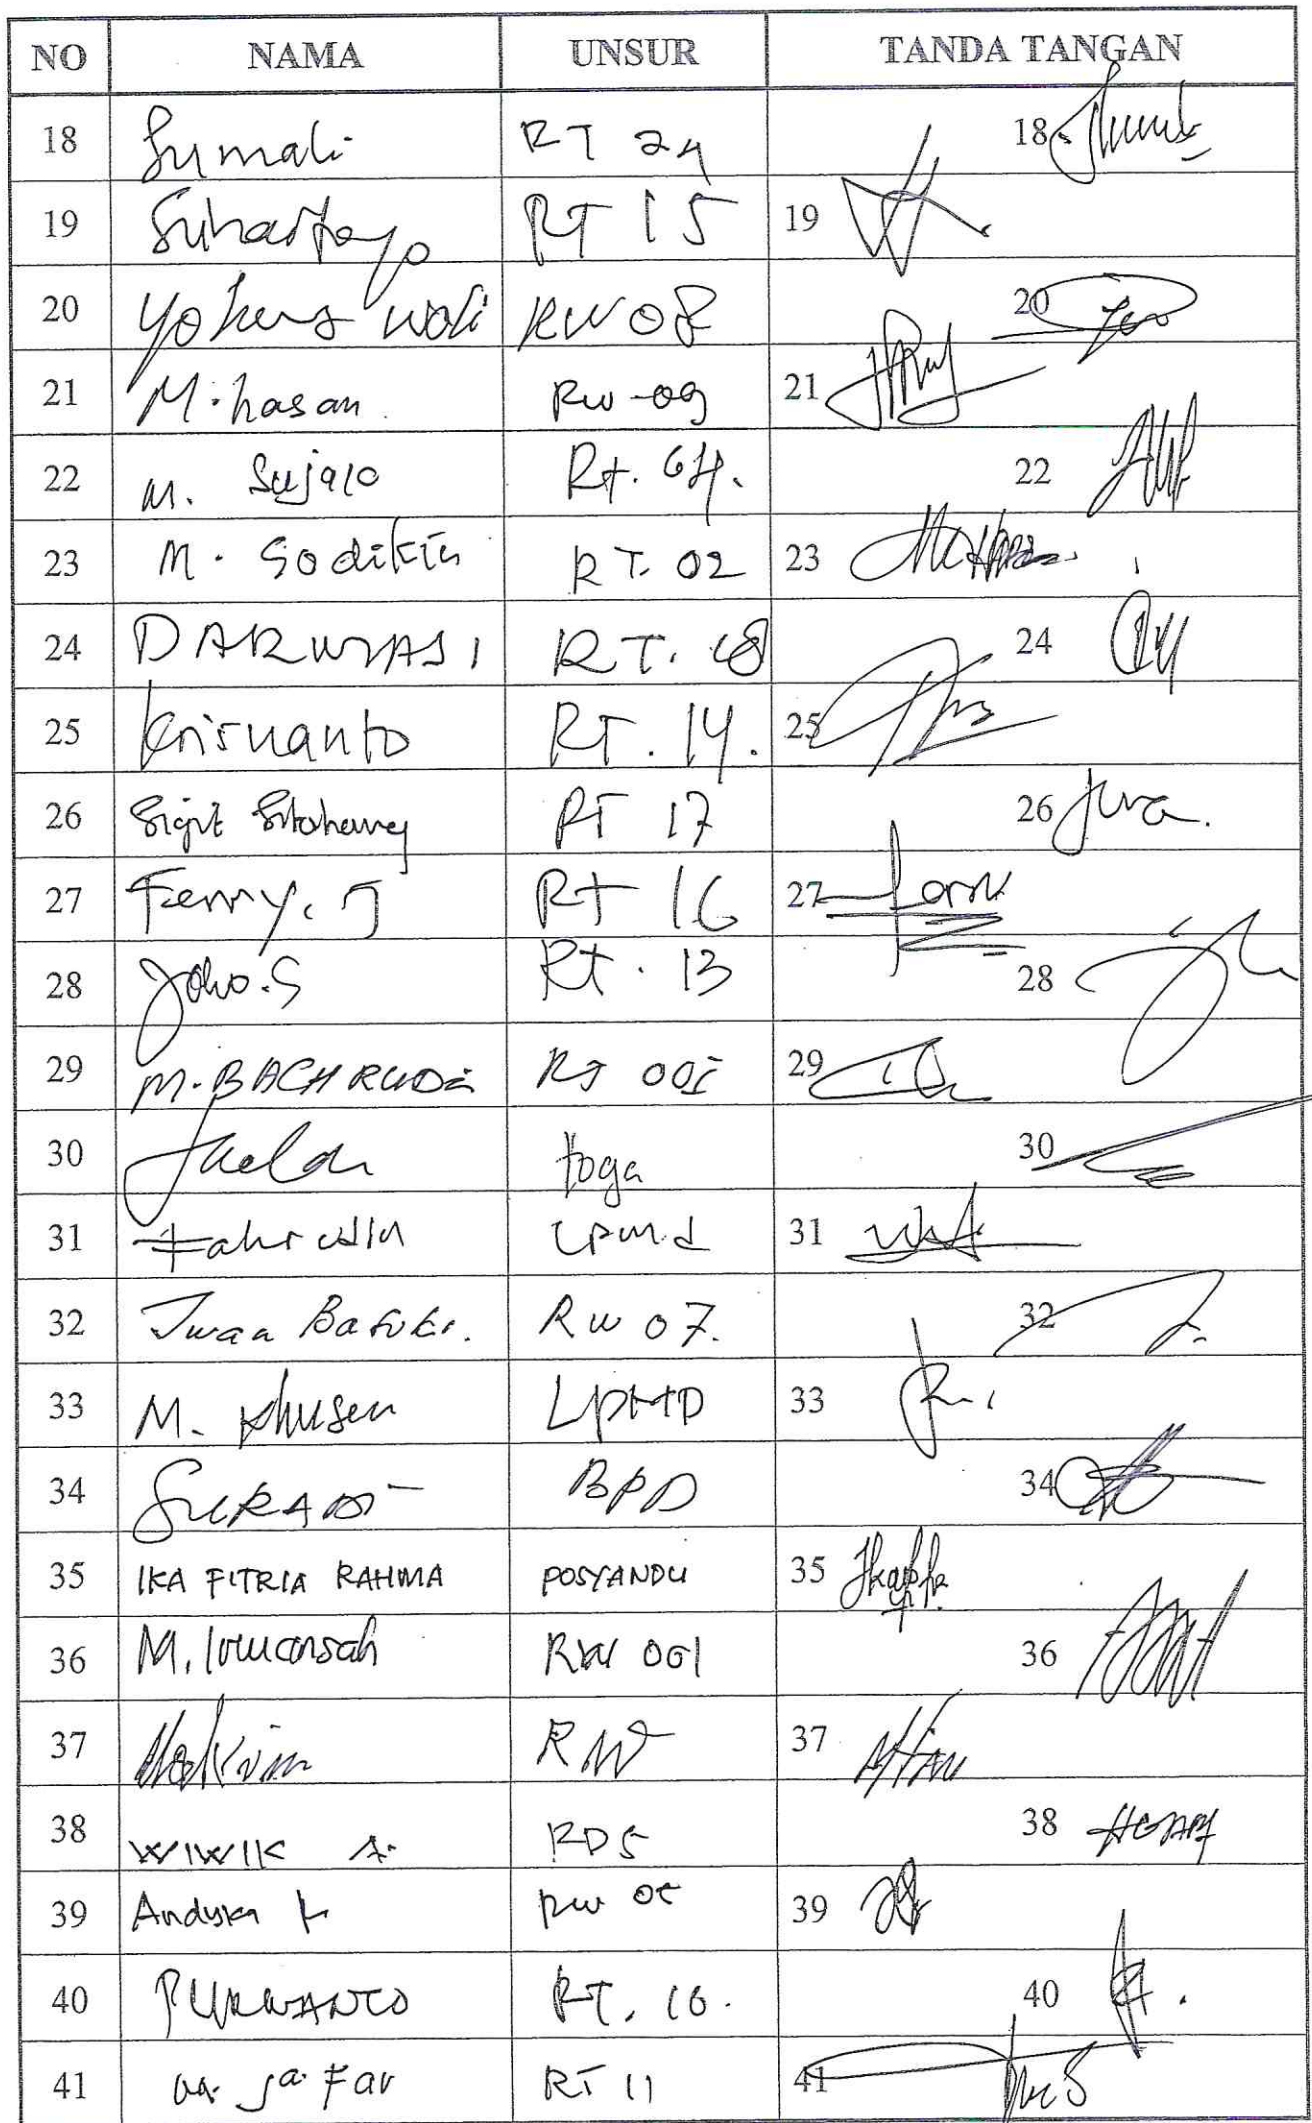 NO NAMA UNSUR TANDA TANGAN
18 Sumali RT 24 18
19 Suhartoyo RT 15 19
20 Yohens woli RW 08 20
21 M. hasan. RW 09 21
22 M. Sujalo Rt. 04. 22
23 M. Sodikin RT. 02 23
24 DARWIASI RT. 18 24
25 Krisnanto RT. 14. 25
26 Sigit RT 17 26
27 Ferry. J RT 16 27
28 Joko.S Rt. 13 28
29 M. BACHRUDI RT 001 29
30 toga 30
31 Fahrudin LPMD 31
32 Iwan Basuki. RW 07. 32
33 M. Khusen LPMD 33
34 SUKADI BPD 34
35 IKA FITRIA RAHMA POSYANDU 35
36 M. Irwansah RW 001 36
37 RW 37
38 WIWIK A. RDS 38
39 Andyka RW 39
40 PURWANTO RT. 10. 40
41 M. Ja'Far RT 11 41